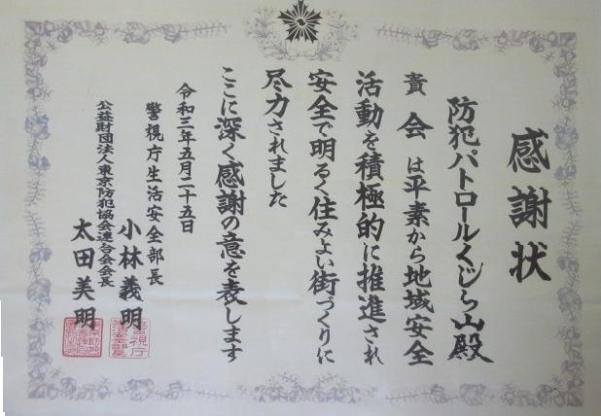 感謝状
防犯パトロールくじら山殿
貴会は平素から地域安全
活動を積極的に推進され
安全で明るく住みよい街づくりに
尽力されました
ここに深く感謝の意を表します
令和三年五月二十五日
警視庁生活安全部長
小林義明
公益財団法人東京防犯協会連合会会長
太田美明